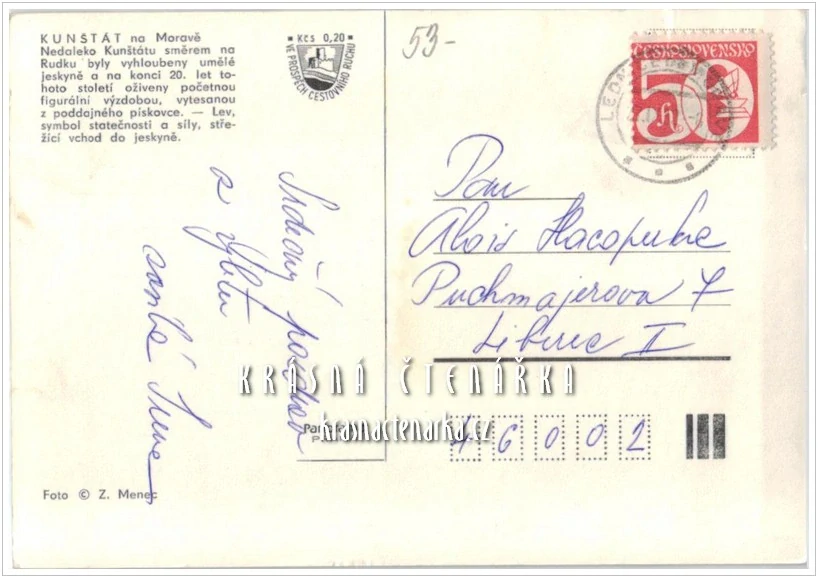 KUNŠTÁT na Moravě
Nedaleko Kunštátu směrem na
Rudku byly vyhloubeny umělé
jeskyně a na konci 20. let to-
hoto století oživeny početnou
figurální výzdobou, vytesanou
z poddajného pískovce. — Lev,
symbol statečnosti a síly, stře-
žící vchod do jeskyně.
Kčs 0,20
VE PROSPĚCH CESTOVNÍHO RUCHU
53-
ČESKOSLOVENSKO
50 h
Srdečný pozdrav
z výletu
Pan
Alois
Puchmajerova 7
Liberec II
46002
KRÁSNÁ ČTENÁŘKA
krasnactenarka.cz
Foto © Z. Menec